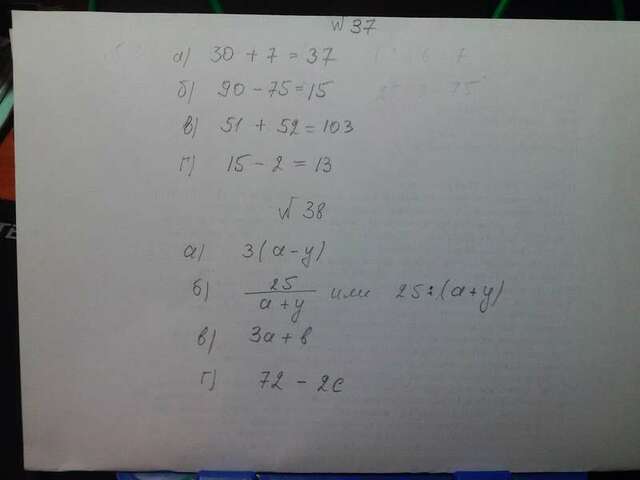 № 37
а) 30 + 7 = 37
б) 90 - 75 = 15
в) 51 + 52 = 103
г) 15 - 2 = 13
№ 38
а) 3(a - y)
б) 25/(a + y) или 25 : (a + y)
в) 3a + b
г) 72 - 2c